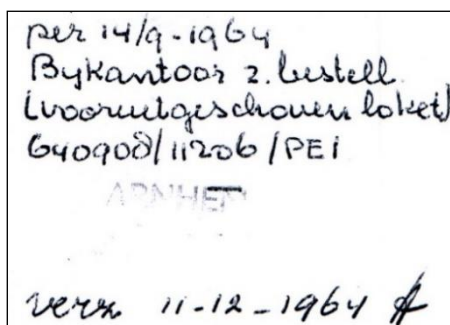 per 14/9-1964
Bykantoor z. bestell.
(vooruitgeschoven loket)
640908/11206/PEI
ARNHEM
verz 11-12-1964